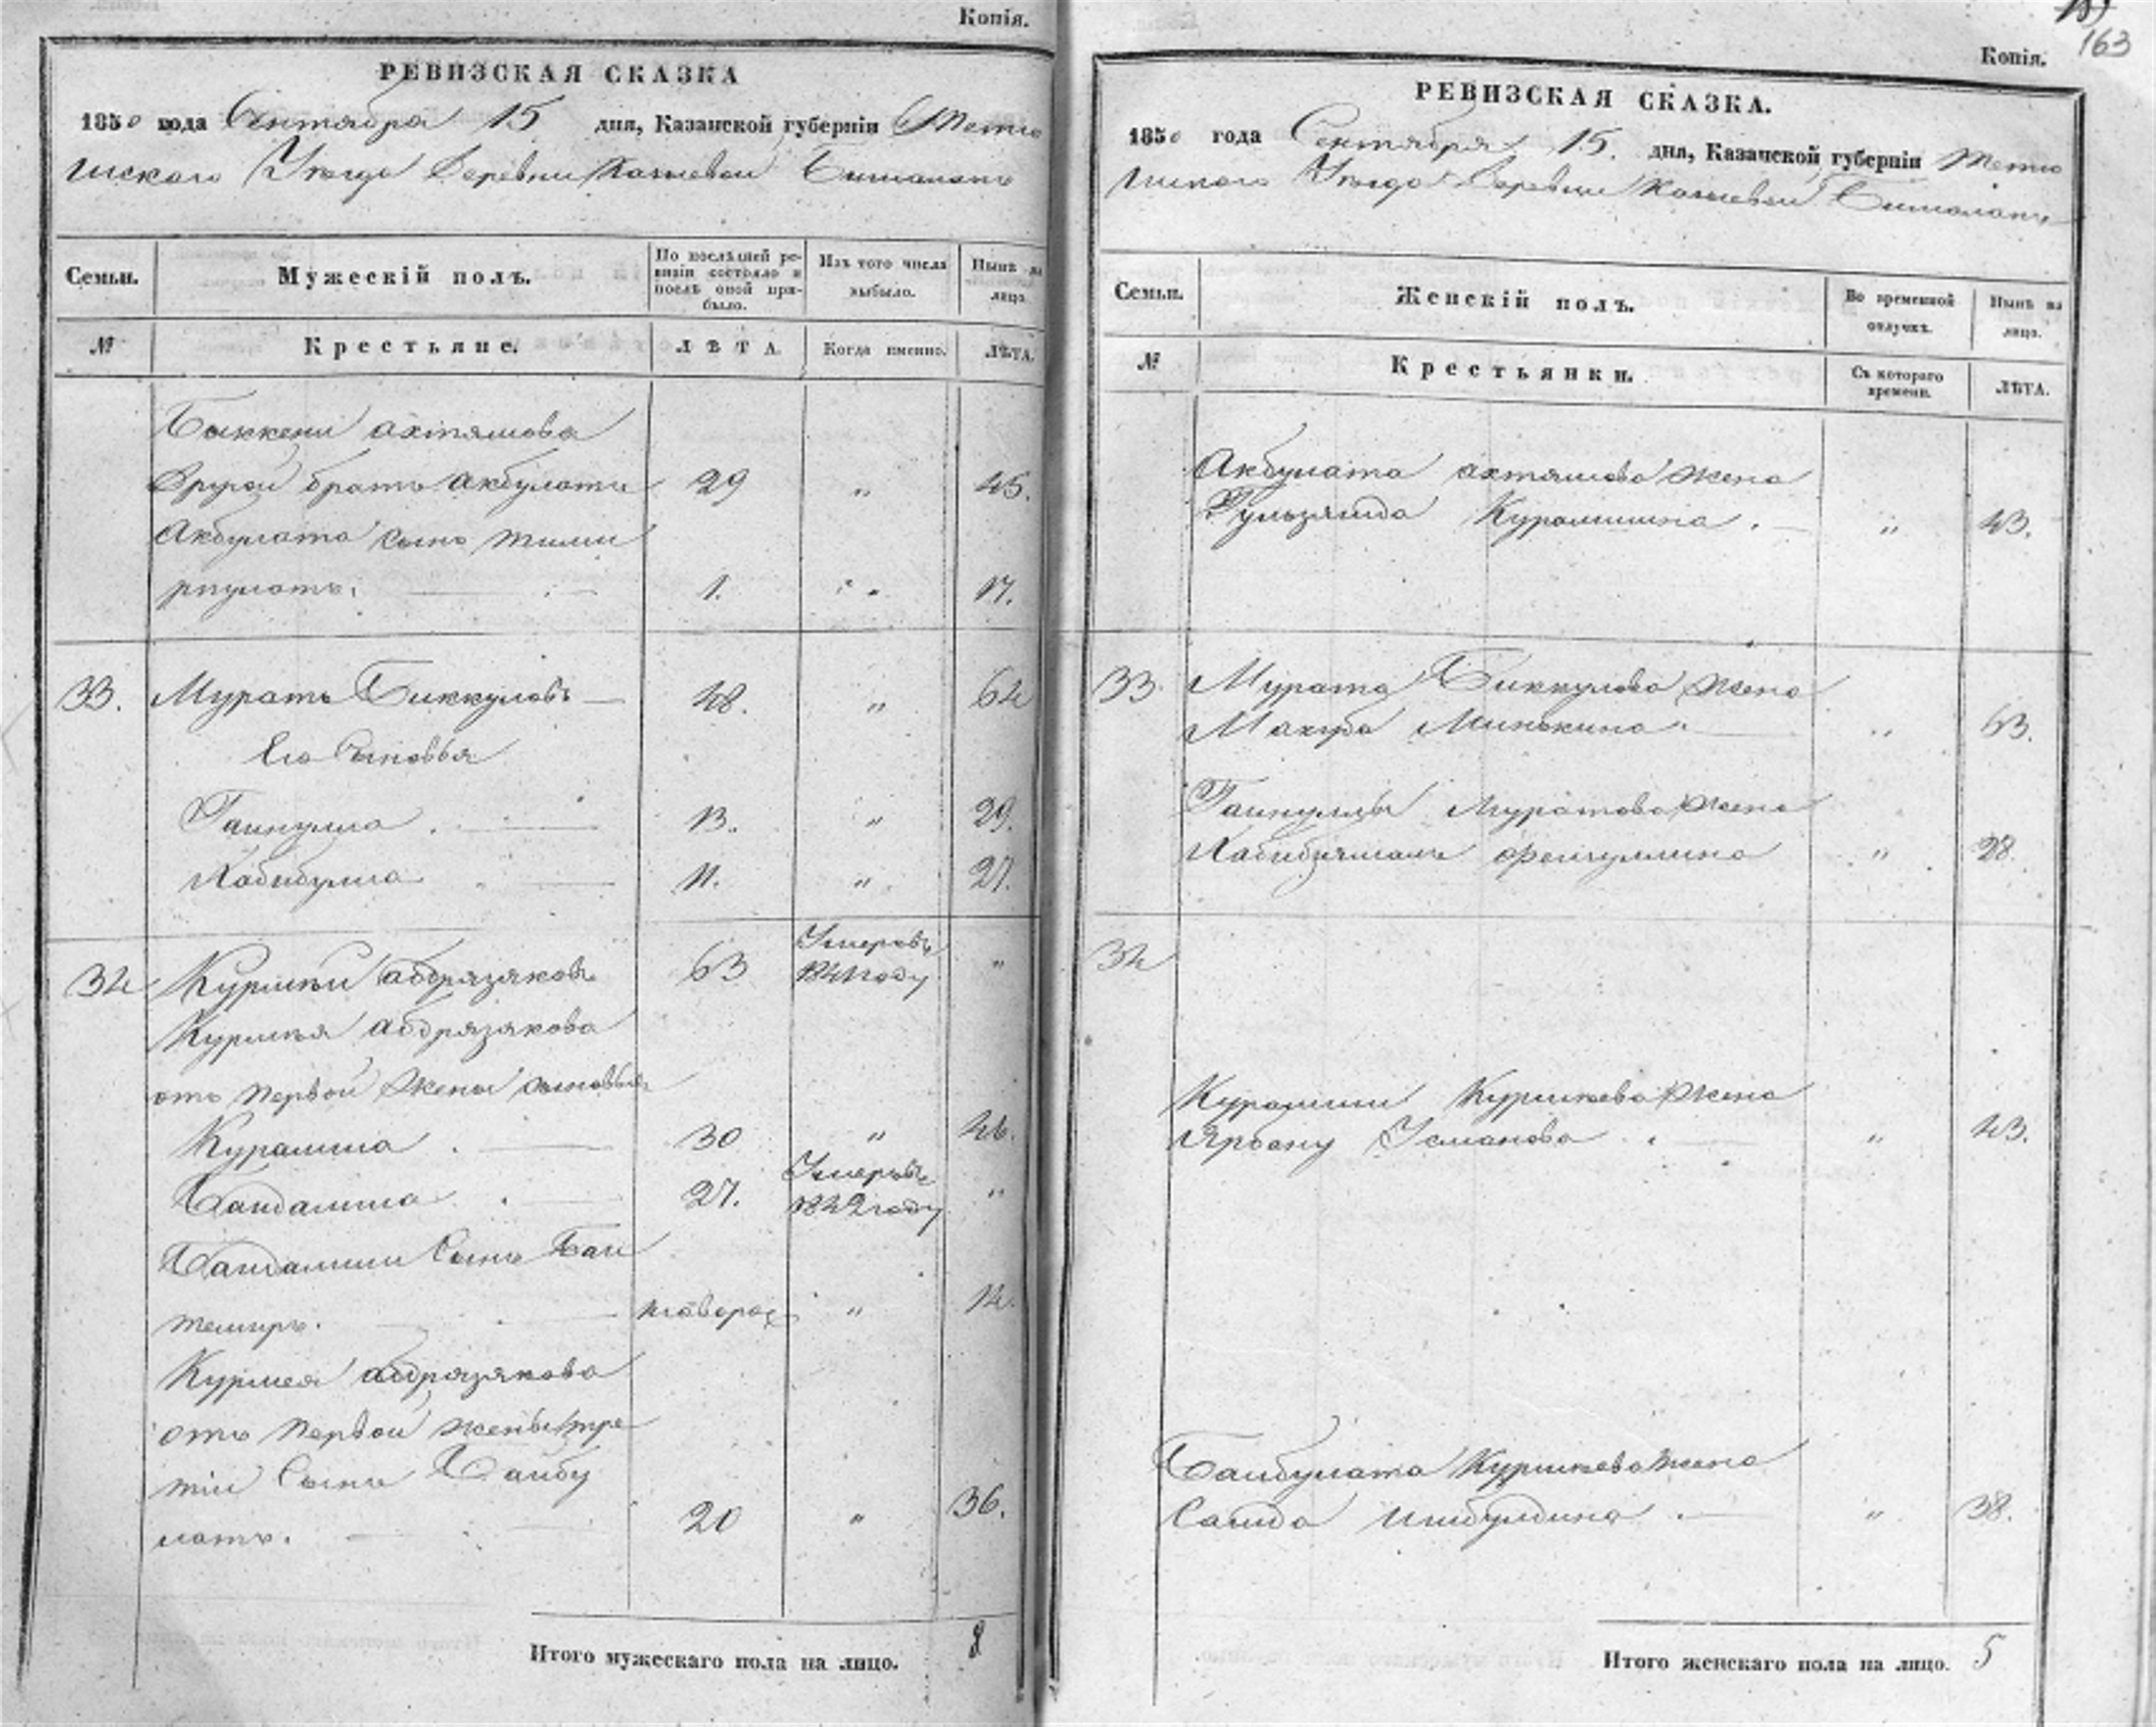 Копія.
РЕВИЗСКАЯ СКАЗКА
1850 года Сентября 15 дня, Казанской губерніи Тетю
шскаго Уѣзда Деревни
Семьи.
Мужескій полъ.
По послѣдней ре-
визіи состояло и
послѣ оной при-
было.
Изъ того числа
выбыло.
Нынѣ на
лицо.
№
Крестьяне.
ЛѢТА.
Когда именно.
ЛѢТА.
Биккени ахтямова
другой братъ акбулатъ 29 " 45.
Акбулата сынъ тими
рпулатъ. 1. " 17.
33. Муратъ Биккуловъ 48. " 64
Его Сыновья
Гайнулла 13. " 29.
Хабибулла 11. " 27.
34 Курмѣй абдрязяковъ 63 Умеръ въ 1841 году "
Курмѣя абдрязякова
отъ первой жены сыновья
Курамша 30 " 46.
Хандамша 27. Умеръ въ 1842 году "
Хандамши Сынъ Бай
темиръ. " 14.
Курмея абдрязякова
отъ первой жены тре
тій Сынъ Байбу
латъ. 20 " 36.
Итого мужескаго пола на лицо. 8
163
Копія.
РЕВИЗСКАЯ СКАЗКА.
1850 года Сентября 15. дня, Казанской губерніи Тетю
шскаго Уѣзда Деревни
Семьи.
Женскій полъ.
Во временной
отлучкѣ.
Нынѣ на
лицо.
№
Крестьянки.
Съ котораго
времени.
ЛѢТА.
Акбулата ахтямова жена
Гульзямда Курамшина. " 43.
33 Мурата Биккулова жена
Махуба Минькина. " 63.
Гайнуллы Муратова жена
Хабибзямалъ Фейзуллина " 28
34
Курамши Курмѣева жена
Усманова " 43.
Байбулата Курмѣева жена
Саида Ишбулдина. " 38.
Итого женскаго пола на лицо. 5